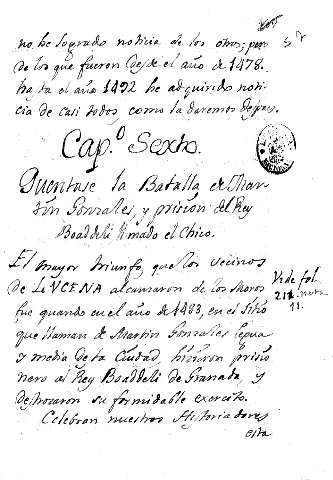 no he logrado noticia de los otros; pero
de los que fueron desde el año de 1478.
hasta el año 1492 he adquirido noti-
cia de casi todos, como la daremos despues.
Cap.º Sexto.
Quentase la Batalla de Mar-
tin Gonzales, y prision del Rey
Boaddeli llmado el Chico.
El mayor triunfo, que los vecinos
de LUCENA alcanzaron de los Moros
fue quando en el año de 1483, en el sitio
que llaman de Martin Gonzales legua
y media de esta Ciudad, hicieron prisio
nero al Rey Boaddeli de Granada, y
destrozaron su formidable exercito.
Vide fol.
211. nota
11.
Celebran nuestros Historiadores
esta